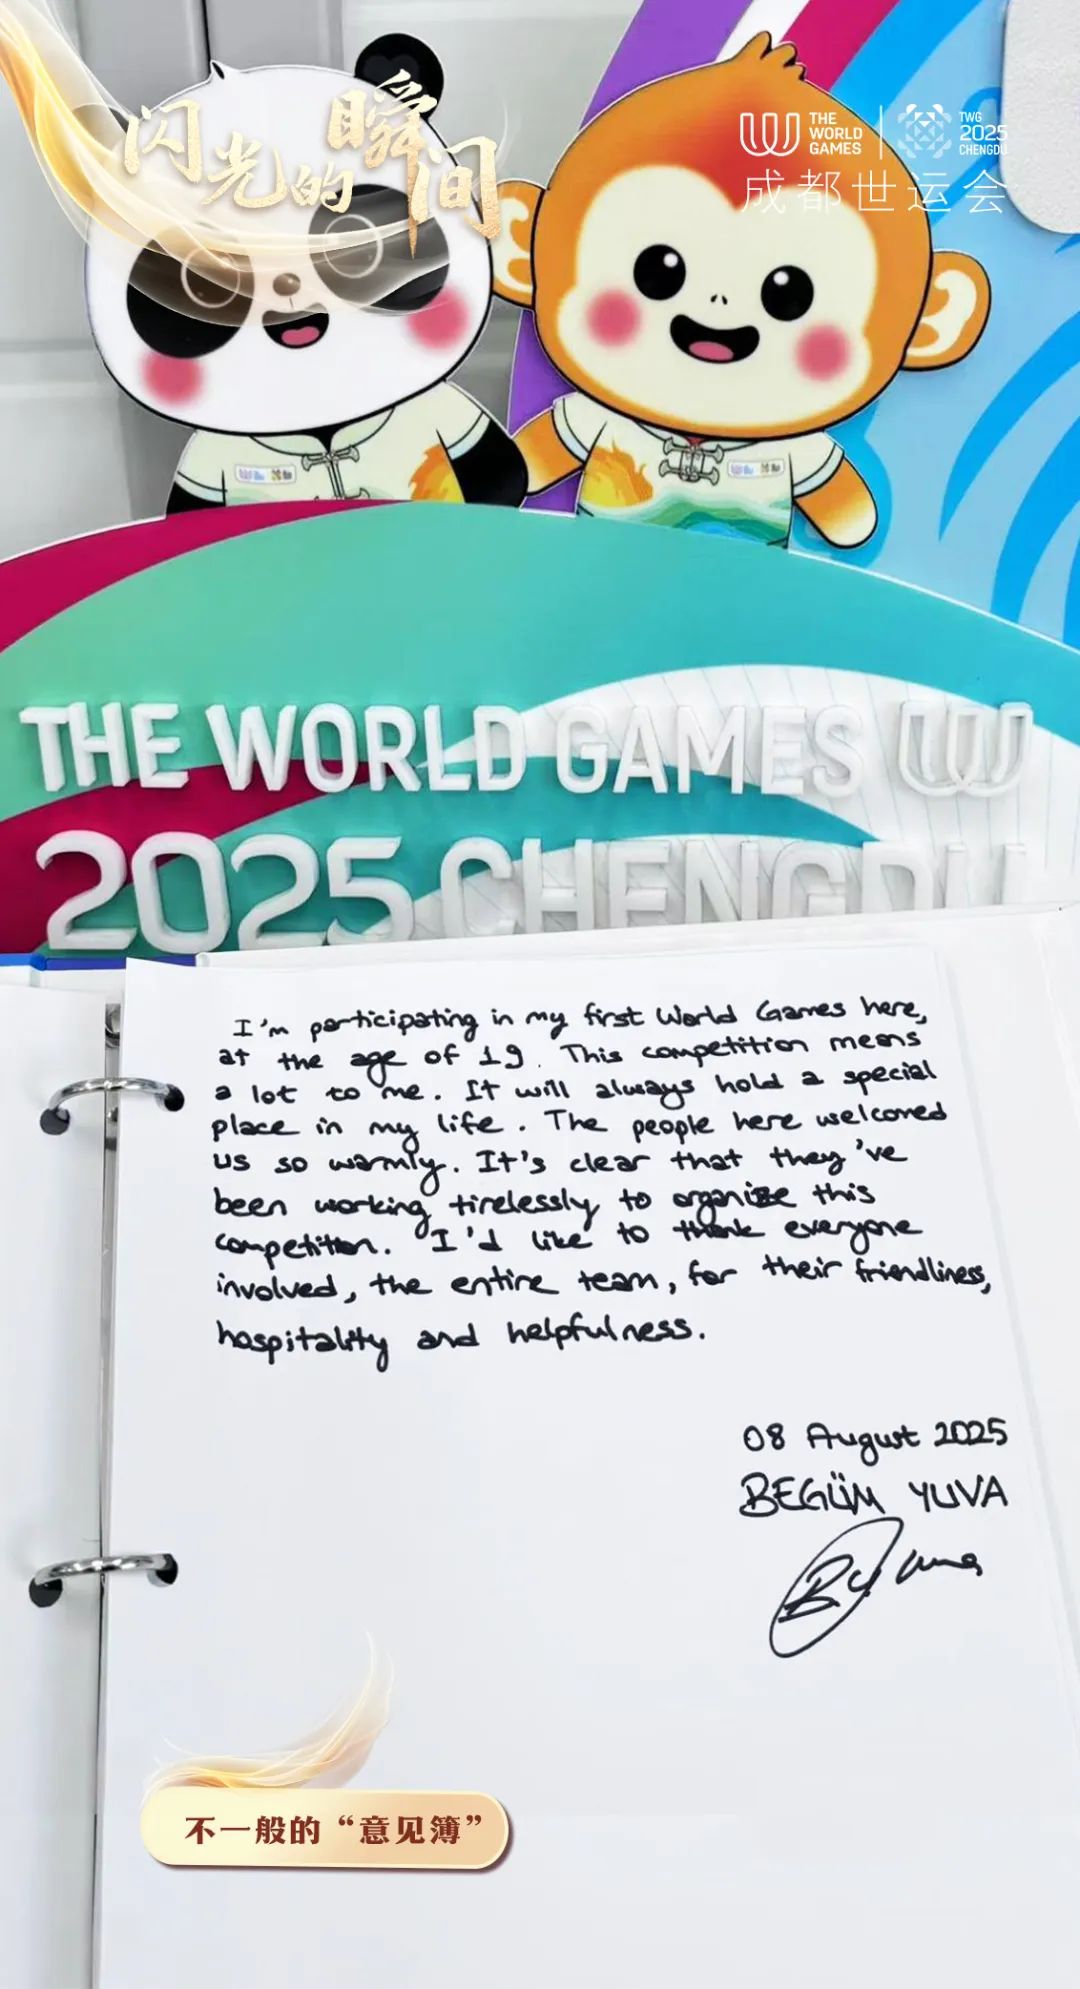 闪光的瞬间
THE WORLD GAMES
TWG 2025 CHENGDU
成都世运会
THE WORLD GAMES
2025 CHENGDU
I'm participating in my first World Games here,
at the age of 19. This competition means
a lot to me. It will always hold a special
place in my life. The people here welcomed
us so warmly. It's clear that they've
been working tirelessly to organize this
competition. I'd like to thank everyone
involved, the entire team, for their friendliness,
hospitality and helpfulness.
08 August 2025
BEGÜM YUVA
不一般的“意见簿”